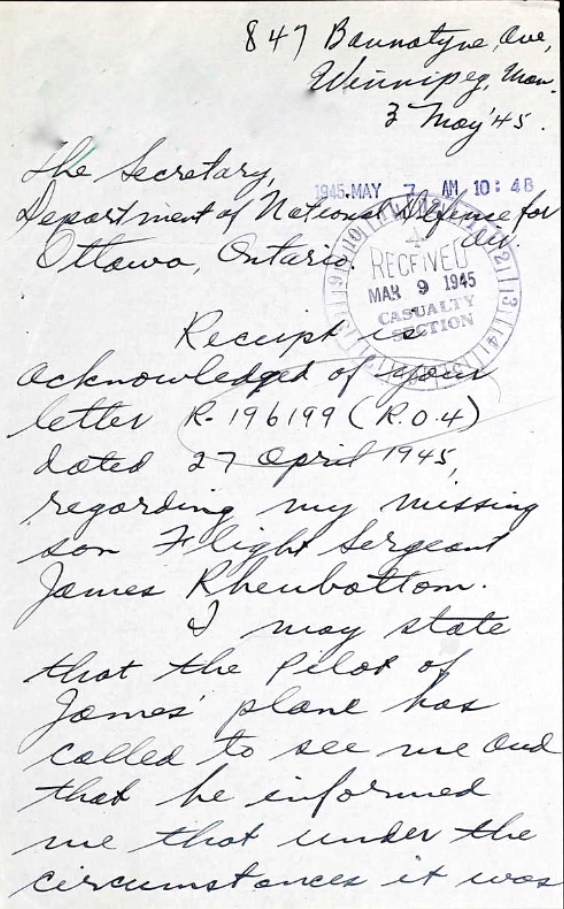 847 Bannatyne, Ave,
Winnipeg, Man.
3 May '45.
The Secretary,
1945. MAY 7 AM 10:48
Department of National Defence for
Air.
Ottawa, Ontario.
RECEIVED
MAR 9 1945
CASUALTY
SECTION
Receipt is
acknowledged of your
letter R-196199 (R.O.4)
dated 27 April 1945,
regarding my missing
son Flight Sergeant
James Rheubottom.
I may state
that the Pilot of
James' plane has
called to see me and
that he informed
me that under the
circumstances it was